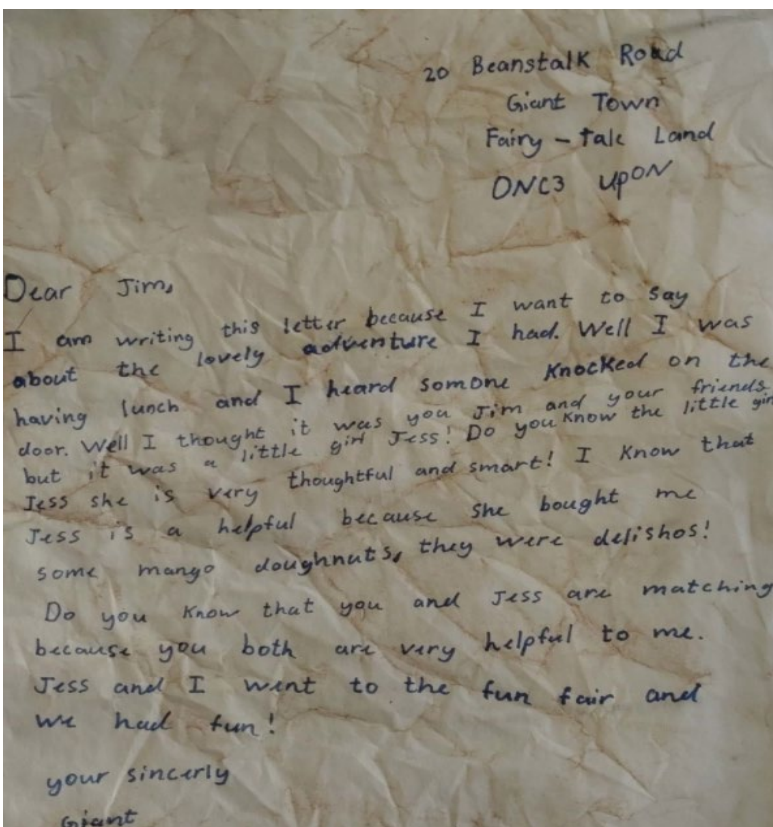 20 Beanstalk Road
Giant Town
Fairy-tale Land
ONC3 UPON
Dear Jim,
I am writing this letter because I want to say
about the lovely adventure I had. Well I was
having lunch and I heard somone knocked on the
door. Well I thought it was you Jim and your friends
but it was a little girl Jess! Do you know the little girl
Jess she is very thoughtful and smart! I know that
Jess is a helpful because she bought me
some mango doughnuts, they were delishos!
Do you know that you and Jess are matching
because you both are very helpful to me.
Jess and I went to the fun fair and
we had fun!
your sincerly
Giant